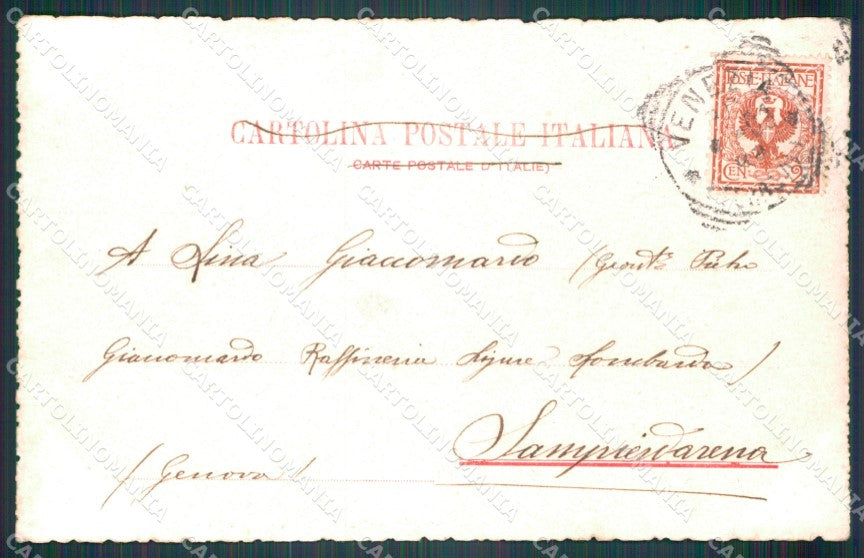 CARTOLINA POSTALE ITALIANA
(CARTE POSTALE D'ITALIE)
POSTE ITALIANE
CEN. 2
VENEZIA
A Lina Giaccomardo
Giaccomardo Raffineria Ligure Lombarda)
Sampierdarena
(Genova)
CARTOLINOMANIA